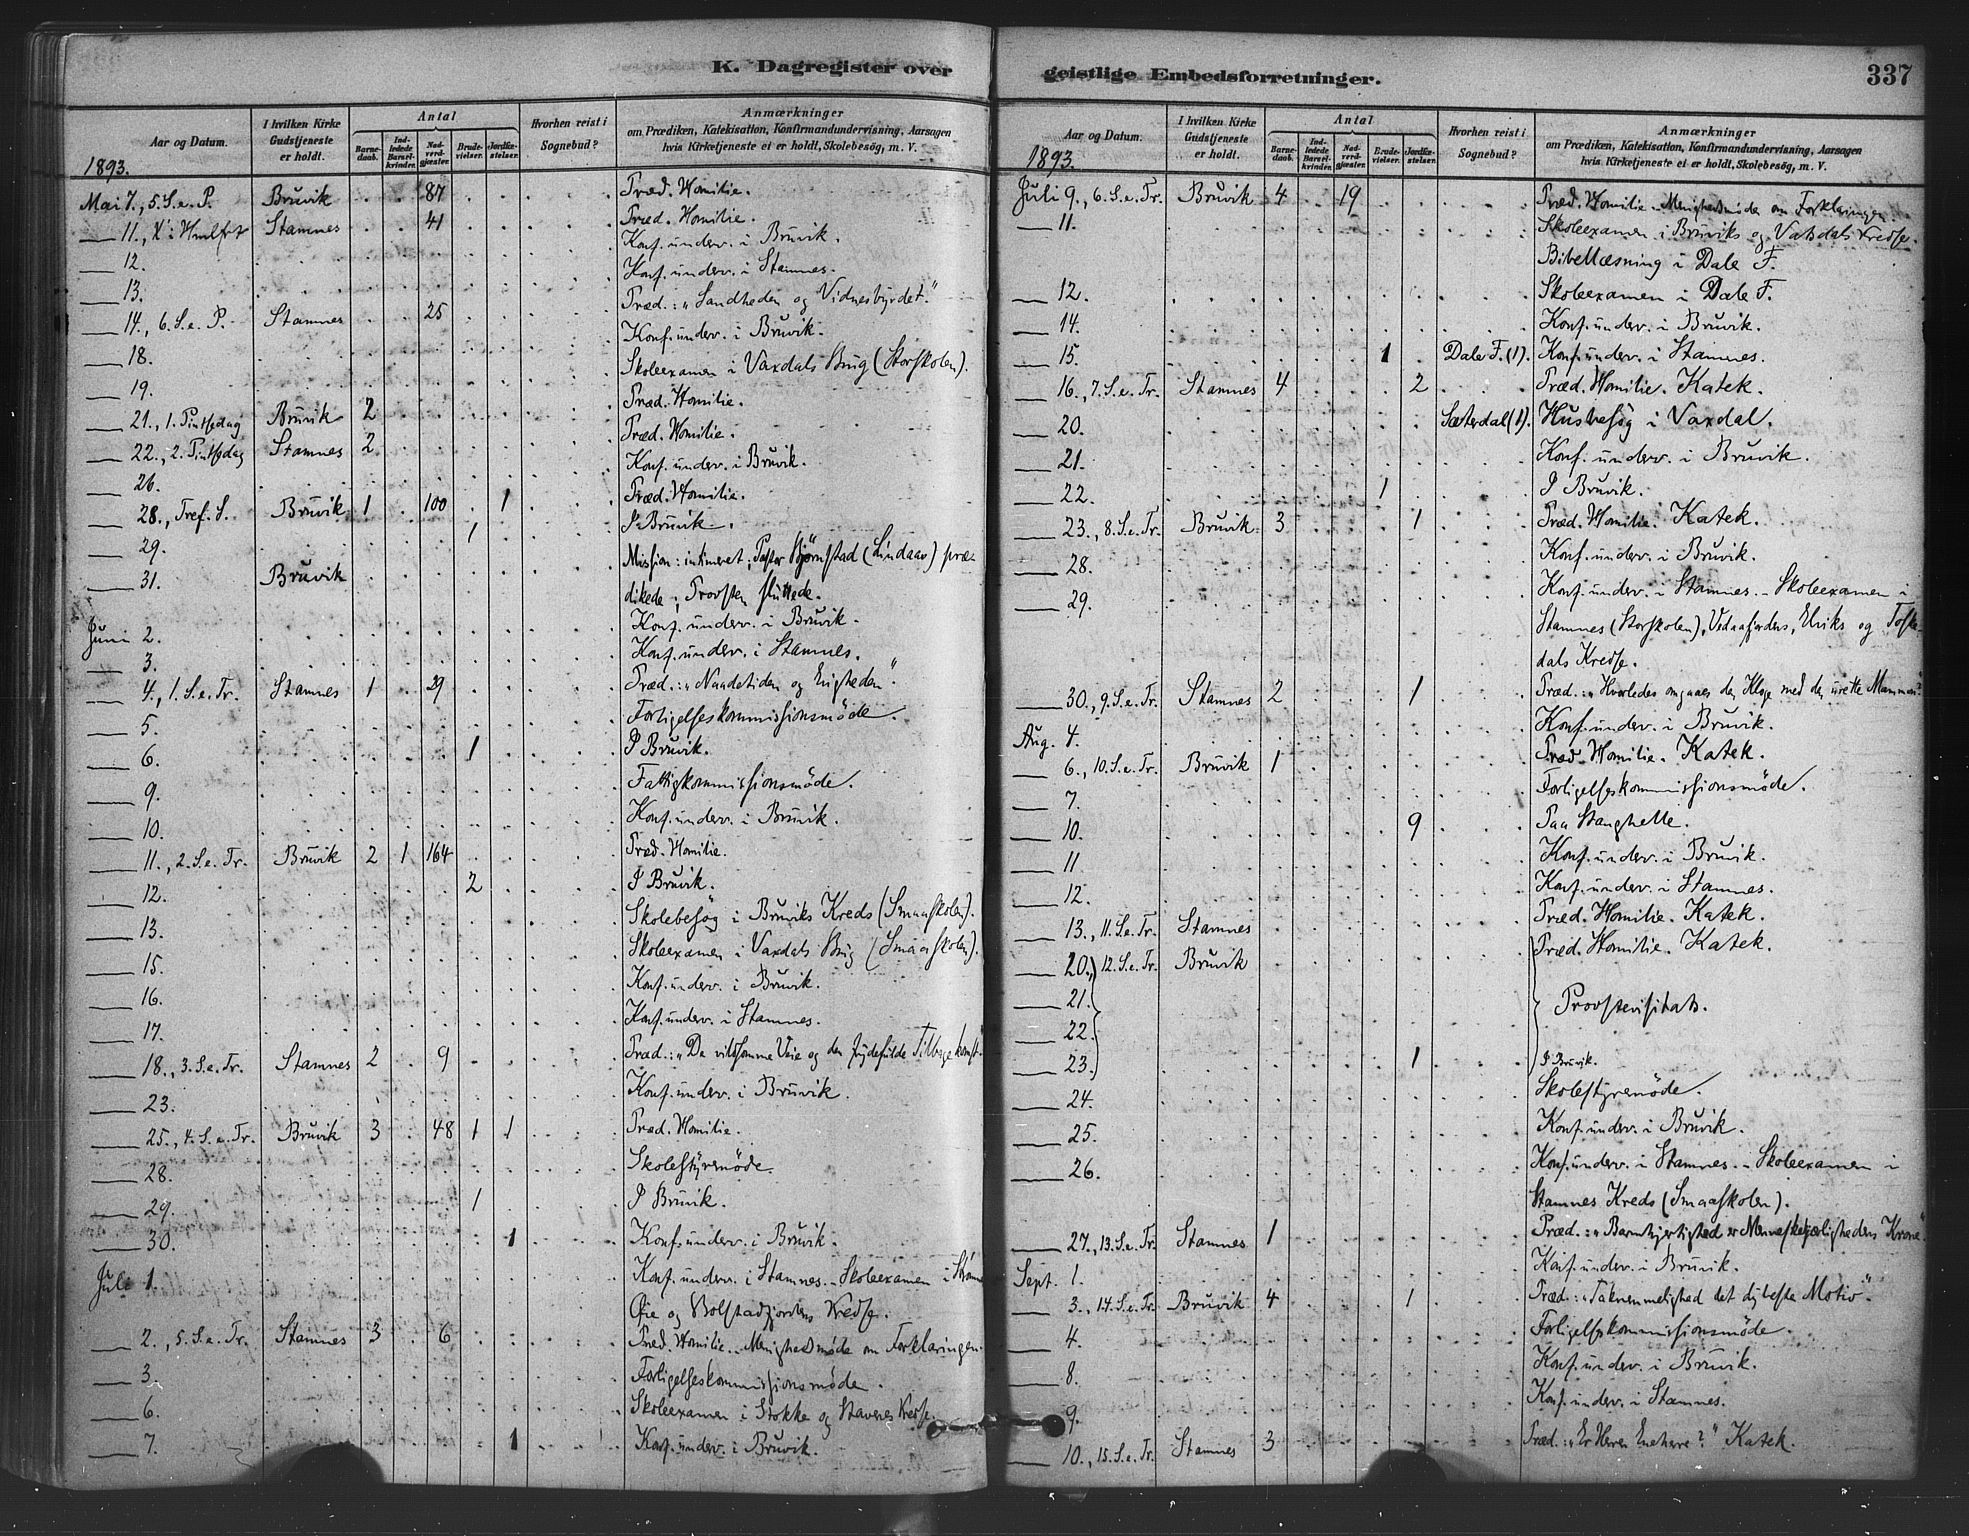 K. Dagregister over
Aar og Datum. I hvilken Kirke Gudstjeneste er holdt. Antal Barne-daab. Ind-ledede Barsel-kvinder. Nad-verd-gjæster. Brude-vielser. Jordfæ-stelser. Hvorhen reist i Sognebud? Anmærkninger om Prædiken, Katekisation, Konfirmandundervisning, Aarsagen hvis Kirketjeneste ei er holdt, Skolebesøg, m. V.
1893.
Mai 7., 5. S. e. P. Bruvik 87 Præd. Homilie.
11., Stamnes 41 Præd. Homilie.
12. Konf. underv. i Bruvik.
13. Konf. underv. i Stamnes.
14., 6. S. e. P. Stamnes 25 Præd.: „Sandheden og Vidnesbyrdet."
18. Konf. underv. i Bruvik.
19. Skoleexamen i Vaxdals Brug (Storskolen).
21., 1. Pintsedag Bruvik 2 Præd. Homilie.
22., 2. Pintsedag Stamnes 2 Præd. Homilie.
26. Konf. underv. i Bruvik.
28., Tref. S. Bruvik 1 100 1 Præd. Homilie.
29. 1 I Bruvik.
31. Bruvik Mission: intimeret; Pastor Bjørnstad (Lindaas) præ-
dikede; Provsten sluttede.
Juni 2. Konf. underv. i Bruvik.
3. Konf. underv. i Stamnes.
4., 1. S. e. Tr. Stamnes 1 29 Præd.: „Naadetiden og Evigheden".
5. Forligelseskommissionsmøde.
6. 1 I Bruvik.
9. Fattigkommissionsmøde.
10. Konf. underv. i Bruvik.
11., 2. S. e. Tr. Bruvik 2 1 164 Præd. Homilie.
12. 2 I Bruvik.
13. Skolebesøg i Bruviks Kreds (Smaaskolen).
15. Skoleexamen i Vaxdals Brug (Smaaskolen).
16. Konf. underv. i Bruvik.
17. Konf. underv. i Stamnes.
18., 3. S. e. Tr. Stamnes 2 9 Præd.: „De vildsomme Veie og den frydefulde Tilbagekomst."
23. Konf. underv. i Bruvik.
25., 4. S. e. Tr. Bruvik 3 48 1 1 Præd. Homilie.
28. Skolestyremøde.
29. 1 I Bruvik.
30. 1 Konf. underv. i Bruvik.
Juli 1. Konf. underv. i Stamnes. – Skoleexamen i
Øie og Bolstadfjordens Kredse.
2., 5. S. e. Tr. Stamnes 3 6 Præd. Homilie. – Menighedsmøde om Forklaringen.
3. Forligelseskommissionsmøde.
6. Skoleexamen i Stokke og Stavenes Kredse.
7. 1 Konf. underv. i Bruvik.
geistlige Embedsforretninger. 337
Aar og Datum. I hvilken Kirke Gudstjeneste er holdt. Antal Barne-daab. Ind-ledede Barsel-kvinder. Nad-verd-gjæster. Brude-vielser. Jordfæ-stelser. Hvorhen reist i Sognebud? Anmærkninger om Prædiken, Katekisation, Konfirmandundervisning, Aarsagen hvis Kirketjeneste ei er holdt, Skolebesøg, m. V.
1893.
Juli 9., 6. S. e. Tr. Bruvik 4 19 Præd. Homilie. – Menighedsmøde om Forklaringen.
11. Skoleexamen i Bruviks og Vaxdals Kredse.
Bibellæsning i Dale F.
12. Skoleexamen i Dale F.
14. Konf. underv. i Bruvik.
15. 1 Dale F. (1). Konf. underv. i Stamnes.
16., 7. S. e. Tr. Stamnes 4 2 Præd. Homilie. Katek.
20. Sæterdal (1). Husbesøg i Vaxdal.
21. Konf. underv. i Bruvik.
22. 1 I Bruvik.
23., 8. S. e. Tr. Bruvik 3 1 Præd. Homilie. Katek.
28. Konf. underv. i Bruvik.
29. Konf. underv. i Stamnes. – Skoleexamen i
Stamnes (Storskolen), Vedaafjordens, Eriks og
dals Kredse.
30., 9. S. e. Tr. Stamnes 2 1 Præd.: „Hvorledes omgaaes den Kloge med den urette Mammon?"
Aug. 4. Konf. underv. i Bruvik.
6., 10. S. e. Tr. Bruvik 1 Præd. Homilie. Katek.
7. Forligelseskommissionsmøde.
10. 9 Paa Stanghelle.
11 Konf. underv. i Bruvik.
12. Konf. underv. i Stamnes.
13., 11. S. e. Tr. Stamnes Præd. Homilie. Katek.
20., 12. S. e. Tr. Bruvik Præd. Homilie. Katek.
21. Provstevisitats.
22.
23. 1 I Bruvik.
24. Skolestyremøde.
25. Konf. underv. i Bruvik.
26. Konf. underv. i Stamnes. – Skoleexamen i
Stamnes Kreds (Smaaskolen).
27., 13. S. e. Tr. Stamnes 1 Præd.: „Barmhjertighed er Menneskekjærlighedens Krone".
Sept. 1. Konf. underv. i Bruvik.
3., 14. S. e. Tr. Bruvik 4 1 Præd.: „Taknemmelighed det dybeste Motiv".
4 Forligelseskommissionsmøde.
8. Konf. underv. i Bruvik.
9. Konf. underv. i Stamnes.
10., 15. S. e. Tr. Stamnes 3 Præd.: „Er Herren Eneherre?" Katek.